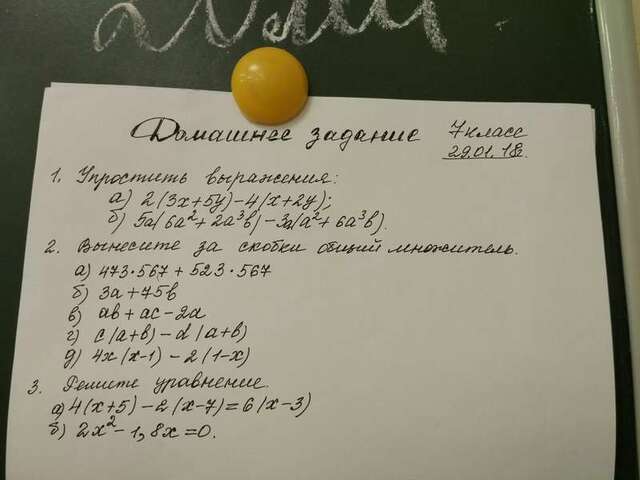 Домашнее задание 7 класс
29.01.18.
1. Упростить выражения:
а) 2(3x+5y)-4(x+2y);
б) 5a(6a²+2a³b)-3a(a²+6a³b).
2. Вынесите за скобки общий множитель.
а) 473·567+523·567
б) 3a+75b
в) ab+ac-2a
г) c(a+b)-d(a+b)
д) 4x(x-1)-2(1-x)
3. Решите уравнение.
а) 4(x+5)-2(x-7)=6(x-3)
б) 2x²-1,8x=0.